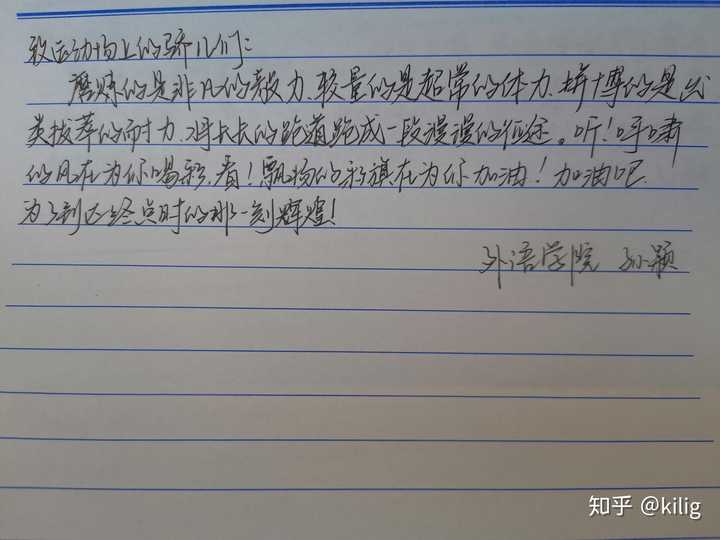 致运动场上的骄儿们:
磨炼的是非凡的毅力、较量的是超常的体力、拼博的是出
类拔萃的耐力、将长长的跑道跑成一段漫漫的征途。听!呼啸
的风在为你喝彩、看!飘扬的彩旗在为你加油!加油吧、
为了到达终点时的那一刻辉煌!
外语学院 孙颖
知乎 @kilig